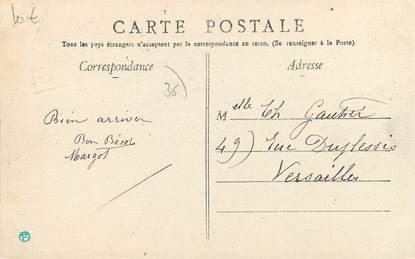 10 €
CARTE POSTALE
Tous les pays étrangers n'acceptent pas la correspondance au recto. (Se renseigner à la Poste).
Correspondance
Adresse
36
Melle Th Gautier
49) rue Duplessis
Versailles
Bien arriver
Bon Bécot
Margot